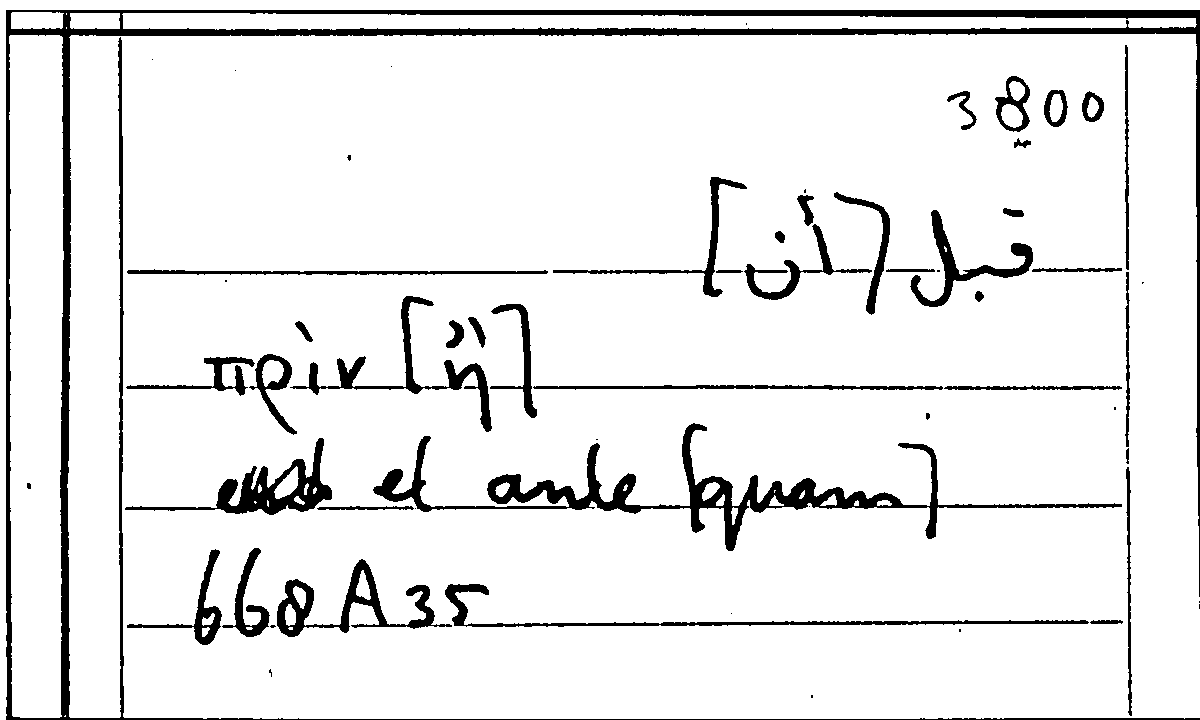 3800
قبل [أن]
πρὶν [ἢ]
et ante [quam]
668 A 35